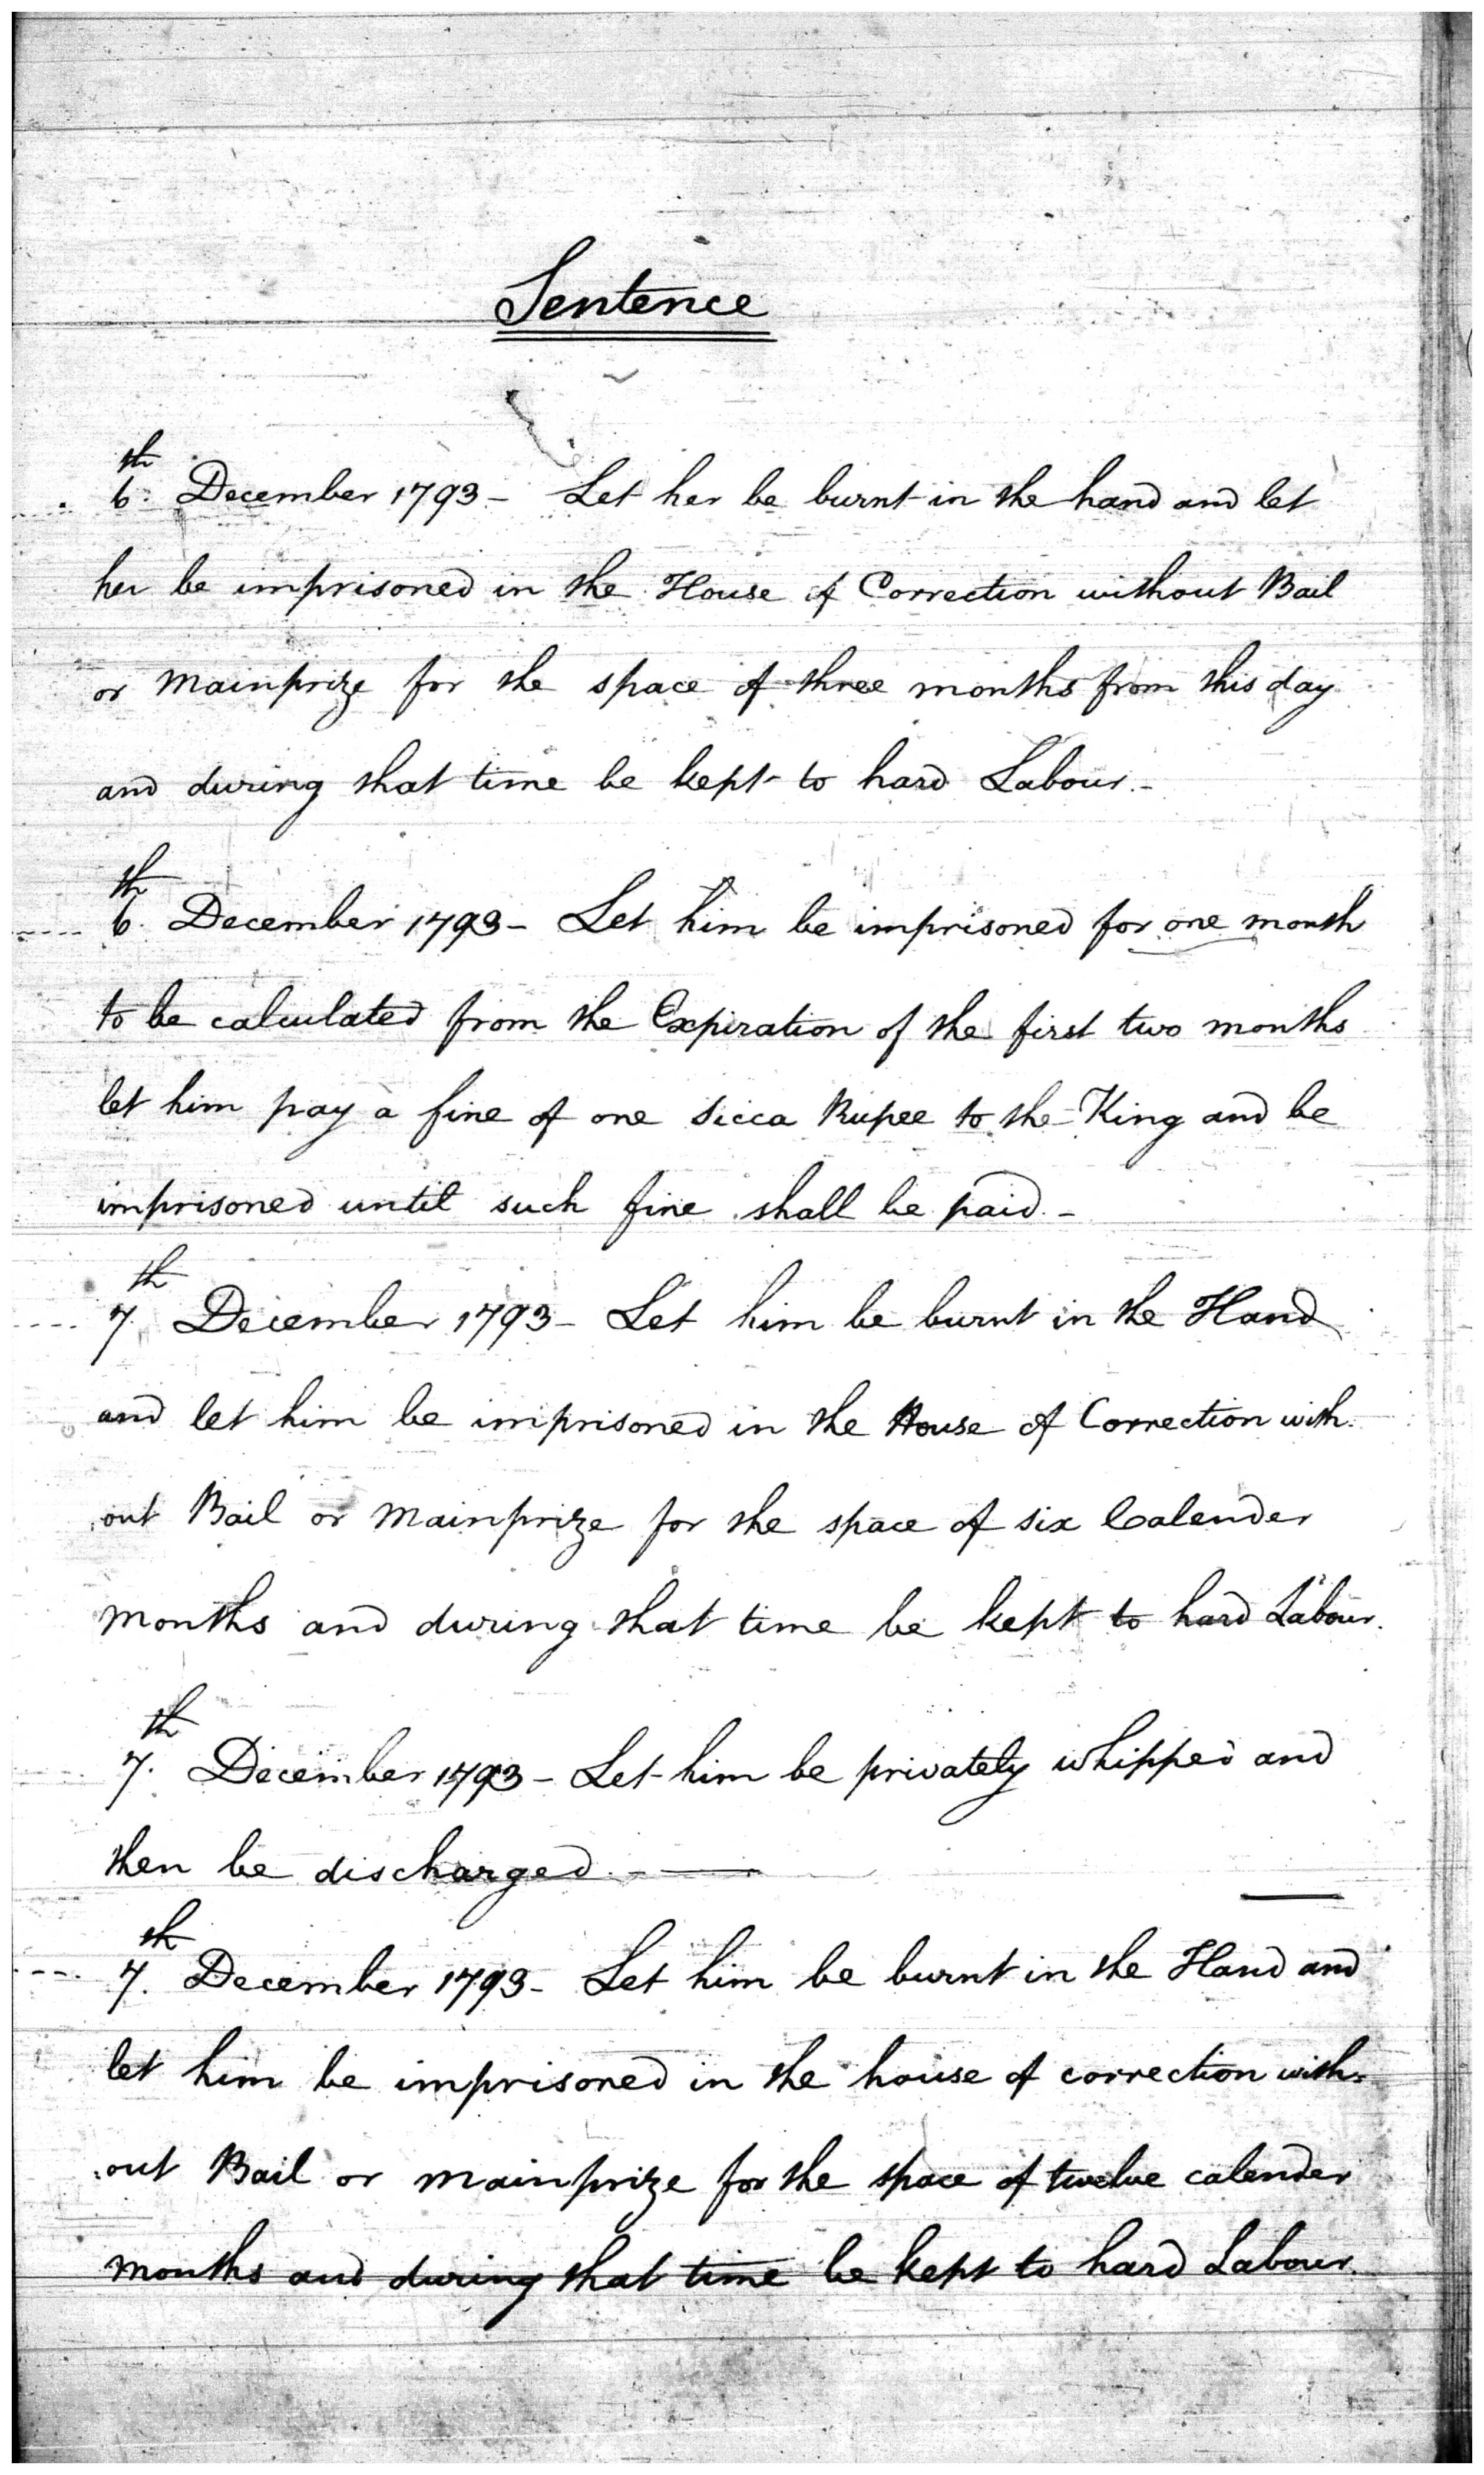 Sentence
6th December 1793 - Let her be burnt in the hand and let
her be imprisoned in the House of Correction without Bail
or Mainprize for the space of three months from this day
and during that time be kept to hard Labour. -
6th December 1793 - Let him be imprisoned for one month
to be calculated from the Expiration of the first two months
let him pay a fine of one Sicca Rupee to the King and be
imprisoned until such fine shall be paid. -
7th December 1793 - Let him be burnt in the Hand
and let him be imprisoned in the House of Correction with
out Bail or Mainprize for the space of six Calender
Months and during that time be kept to hard Labour.
7th December 1793 - Let him be privately whipped and
then be discharged. -
7th December 1793 - Let him be burnt in the Hand and
let him be imprisoned in the house of correction with
out Bail or Mainprize for the space of twelve calender
Months and during that time be kept to hard Labour.